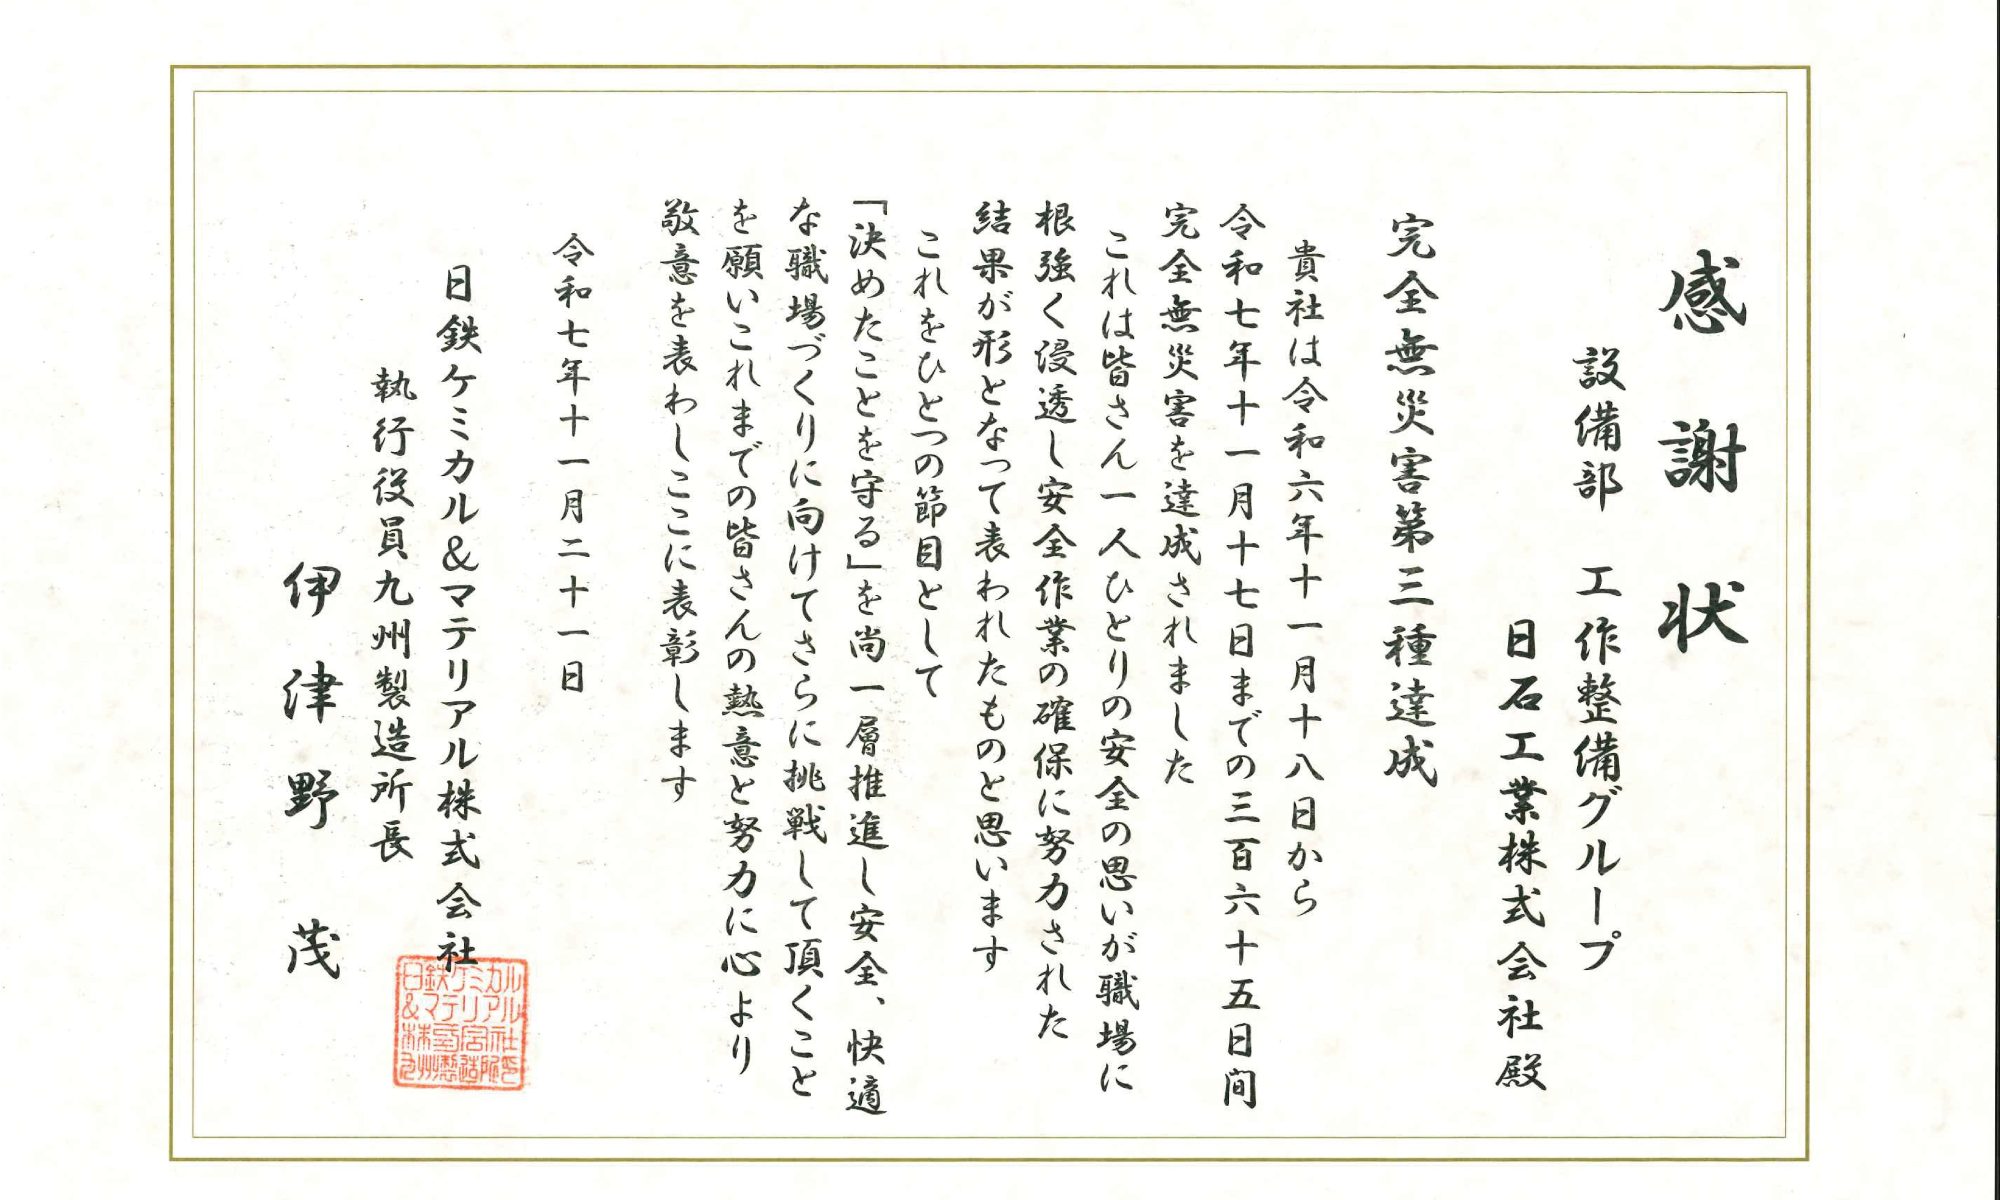 感謝状
設備部 工作整備グループ
日石工業株式会社殿
完全無災害第三種達成
貴社は令和六年十一月十八日から
令和七年十一月十七日までの三百六十五日間
完全無災害を達成されました
これは皆さん一人ひとりの安全の思いが職場に
根強く浸透し安全作業の確保に努力された
結果が形となって表われたものと思います
これをひとつの節目として
「決めたことを守る」を尚一層推進し安全、快適
な職場づくりに向けてさらに挑戦して頂くこと
を願いこれまでの皆さんの熱意と努力に心より
敬意を表わしここに表彰します
令和七年十一月二十一日
日鉄ケミカル&マテリアル株式会社
執行役員九州製造所長
伊津野 茂
日鉄ケミカル
&マテリアル